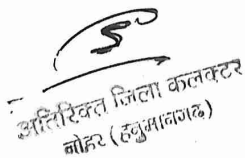 अतिरिक्त जिला कलक्टर
नोहर (हनुमानगढ)